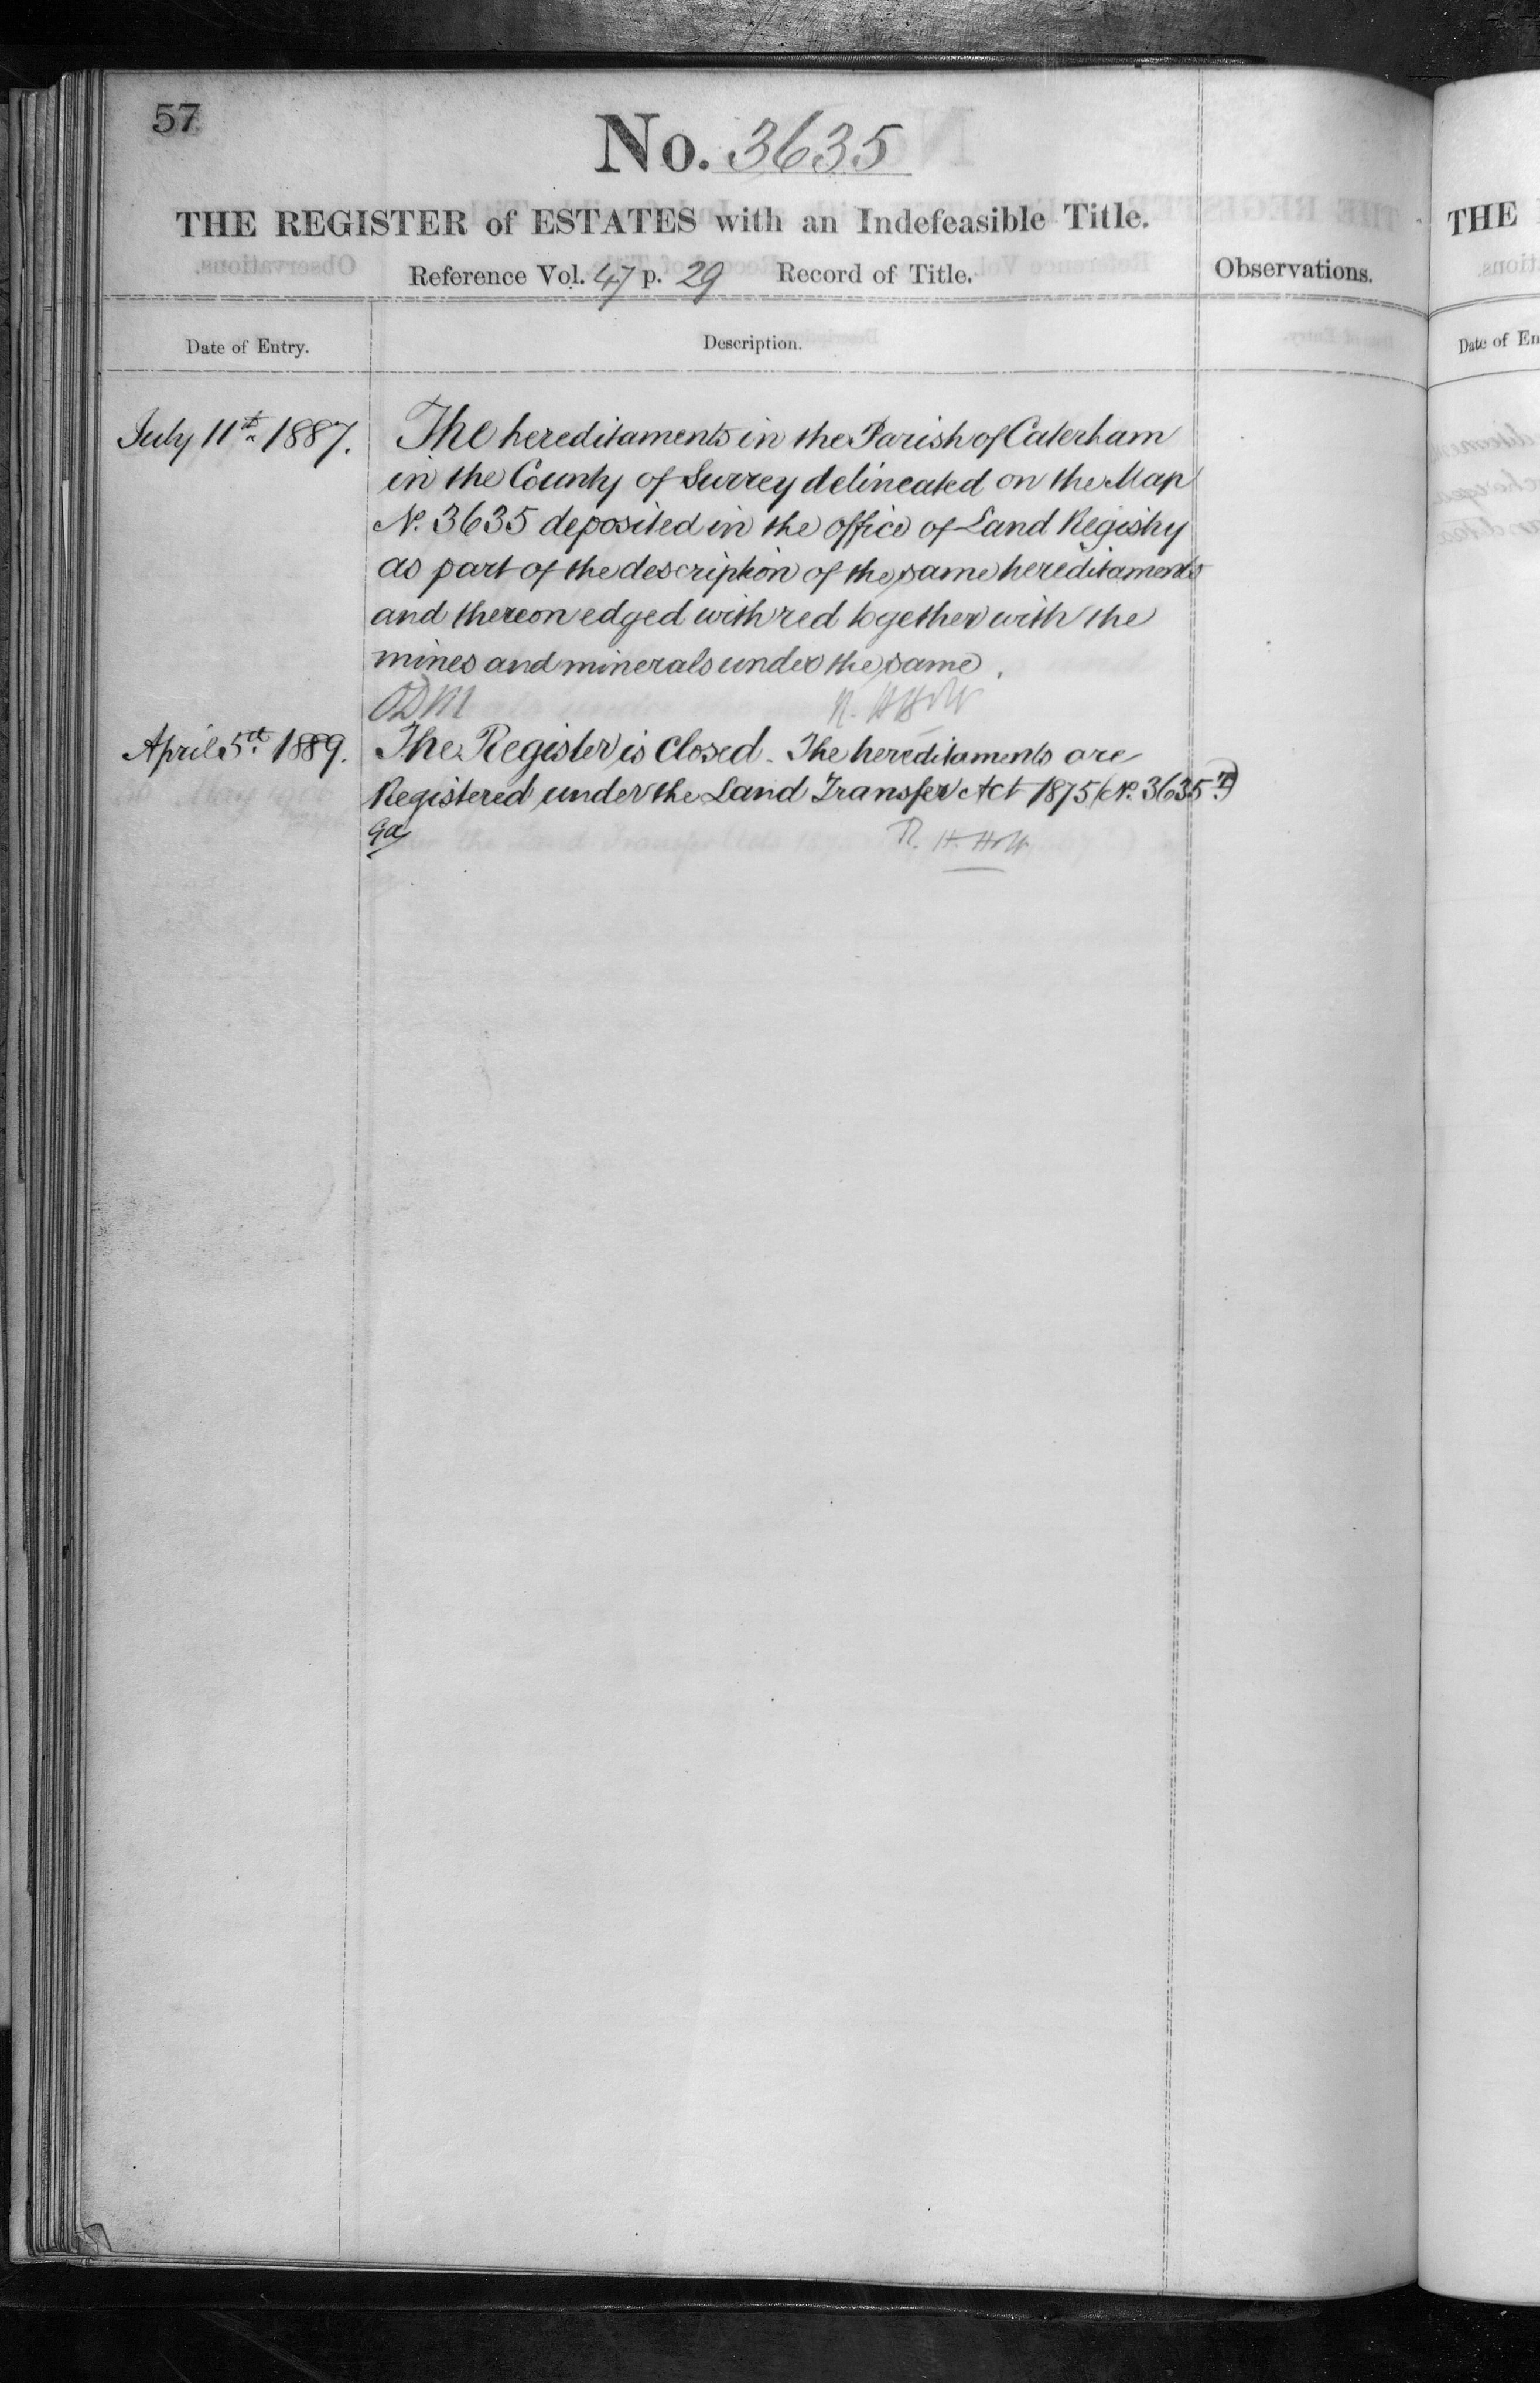 57
No. 3635
THE REGISTER of ESTATES with an Indefeasible Title.
Reference Vol. 47 p. 29 Record of Title.
Observations.
Date of Entry.
Description.
July 11th 1887.
The hereditaments in the Parish of Caterham
in the County of Surrey delineated on the Map
No. 3635 deposited in the office of Land Registry
as part of the description of the same hereditaments
and thereon edged with red together with the
mines and minerals under the same.
R. H. Holt
April 5th 1889.
The Register is Closed - The hereditaments are
Registered under the Land Transfer Act 1875 (No. 3635
R. H. Holt
THE
Date of En